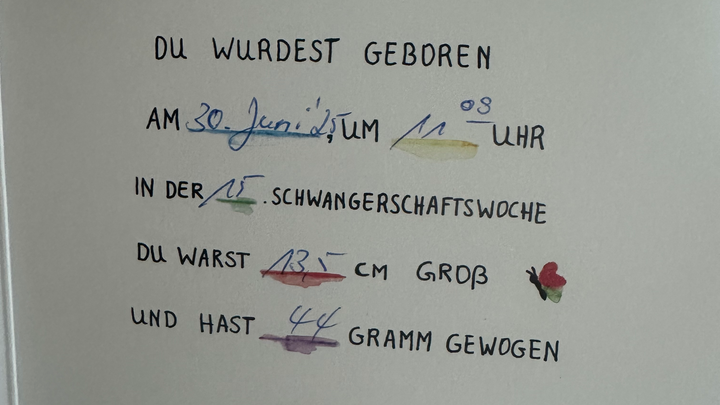 DU WURDEST GEBOREN
AM 30. Juni '25, UM 11 09 UHR
IN DER 15 . SCHWANGERSCHAFTSWOCHE
DU WARST 13,5 CM GROß
UND HAST 44 GRAMM GEWOGEN